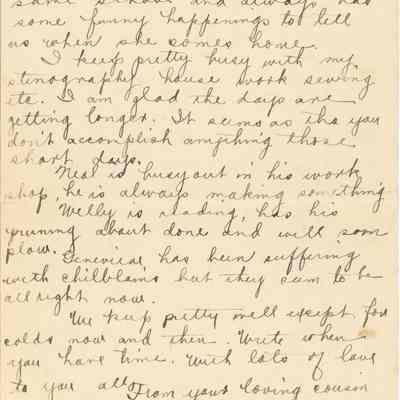 same school and always has
some funny happenings to tell
us when she comes home.
I keep pretty busy with my
stenography house work sewing
etc. I am glad the days are
getting longer. It seems as tho you
don't accomplish anything those
short days.
Neal is busy out in his work
shop, he is always making something
Welly is reading, has his
pruning about done and will soon
plow.
Genevieve has been suffering
with chilblains but they seem to be
all right now.
We keep pretty well except for
colds now and then. Write when
you have time. With lots of love
to you all
From your loving cousin